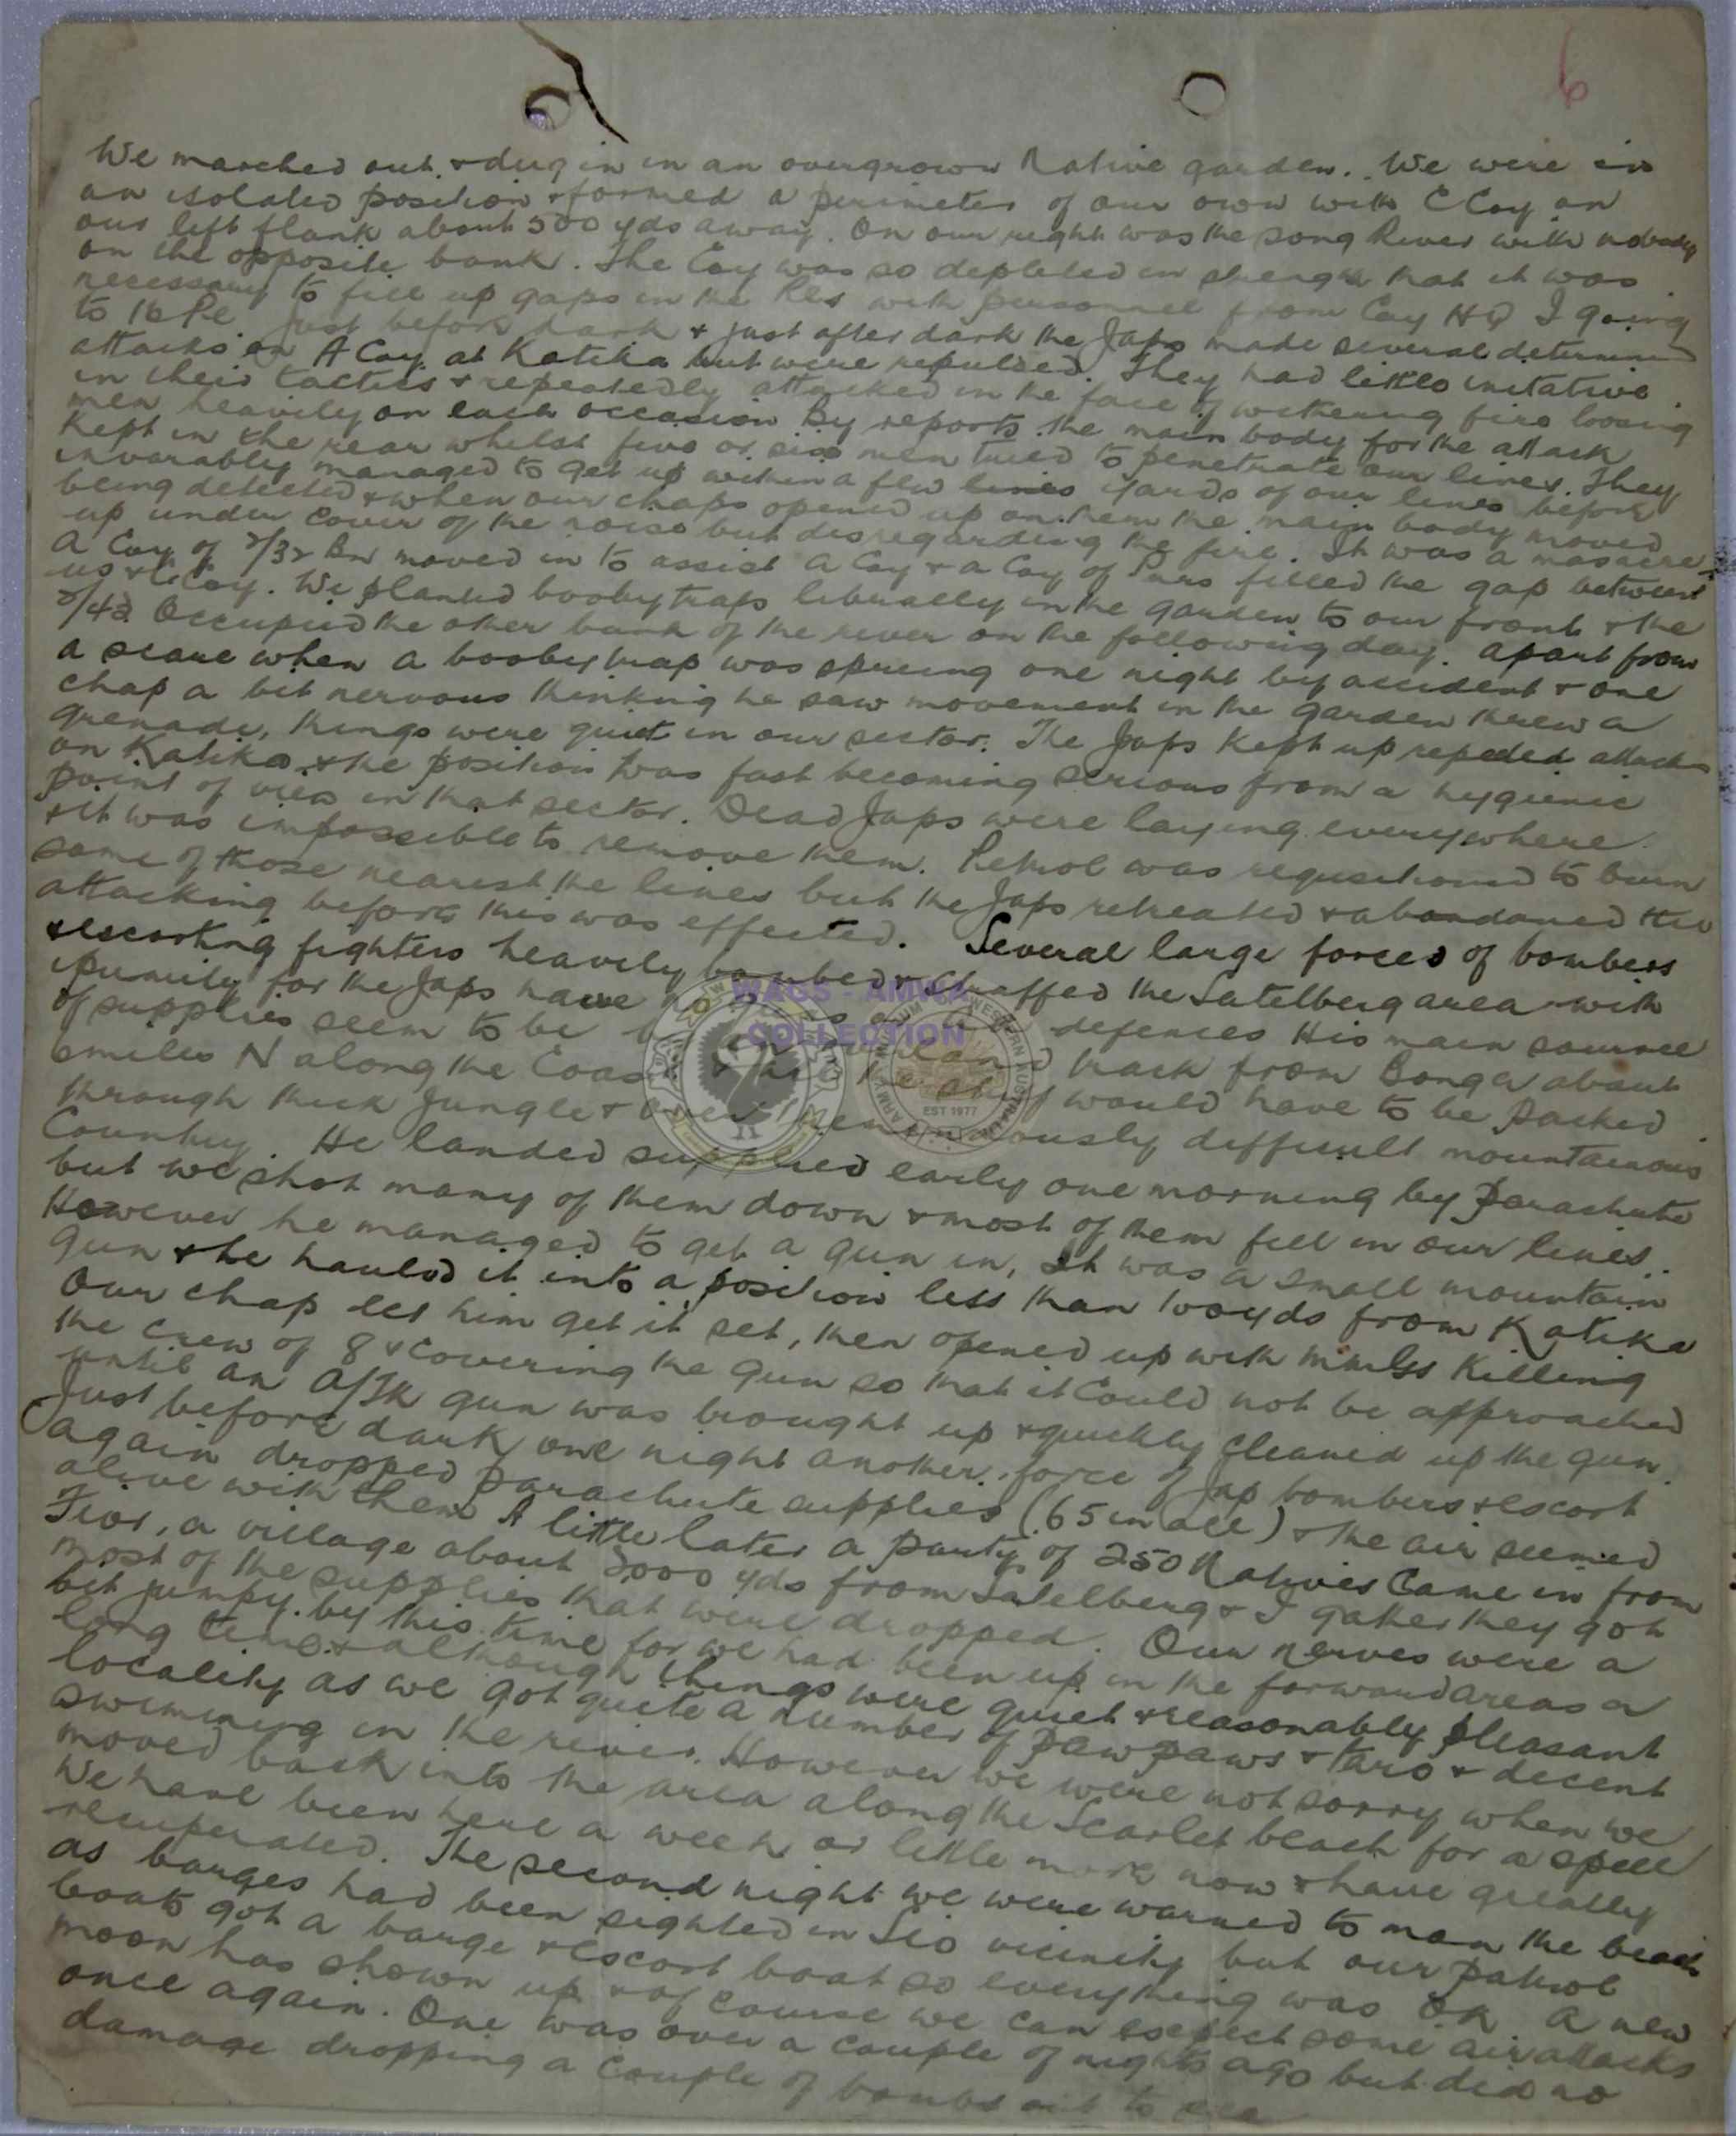 6
We marched out & dug in in an overgrown Native garden. We were in
an isolated position & formed a perimeter of our own with C Coy on
our left flank about 500 yds away. On our right was the Song River with nobody
on the opposite bank. The Coy was so depleted in strength that it was
necessary to fill up gaps in the Pls with personnel from Coy HQ I going
to 16 Pl. Just before dark & just after dark the Japs made several determined
attacks on A Coy. at Katika but were repulsed. They had little initative
in their tactics & repeatedly attacked in the face of withering fire loosing
men heavily on each occasion By reports the main body for the attack
kept in the rear whilst five or six men tried to penetrate our lines. They
invarably managed to get up within a few lines yards of our lines before
being detected & when our chaps opened up on them the main body moved
up under cover of the noise but disregarding the fire. It was a masacre.
A Coy of 2/32 Bn moved in to assist A Coy & a Coy of Purs filled the gap between
us & C Coy. We planted booby traps liberally in the garden to our front & the
2/43 Occupied the other bank of the river on the following day. Apart from
a scare when a booby trap was sprung one night by accident & one
chap a bit nervous thinking he saw movement in the garden threw a
grenade, things were quiet in our sector. The Japs kept up repeted attacks
on Katika & the position was fast becoming serious from a hygienic
point of view in that sector. Dead Japs were laying everywhere
& it was impossible to remove them. Petrol was requsitioned to burn
some of those nearest the lines but the Japs retreated & abandoned the
attacking before this was effected. Several large forces of bombers
& escorting fighters heavily bombed & straffed the Satelberg area with
ipunity for the Japs have no defences His main source
of supplies seem to be track from Bonga about
6 miles N along the Coast would have to be packed
through thick jungle & over tremendously difficult mountainous
Country. He landed supplies early one morning by parachute
but we shot many of them down & most of them fell in our lines.
However he managed to get a gun in, It was a small mountain
gun & he hauled it into a position less than 100 yds from Katika
Our chap let him get it set, then opened up with killing
the crew of 8 & covering the gun so that it could not be approached
until an A/Tk gun was brought up & quickly cleaned up the gun.
Just before dark one night another force of Jap bombers & escort
again dropped parachute supplies (65 in all) & the air seemed
alive with them A little later a party of 250 Natives came in from
a village about 2000 yds from Satelberg & I gather they got
most of the supplies that were dropped. Our nerves were a
bit jumpy by this time for we had been up in the forward areas a
long time & although things were quiet & reasonably pleasant
locality as we got quite a number of paw paws & taro & decent
swimming in the river. However we were not sorry when we
moved back into the area along the Scarlet beach for a spell
We have been here a week or little more now & have greatly
recuperated. The second night we were warned to man the beach
as barges had been sighted in Sio vicinity but our patrol
boats got a barge & escort boat so everything was OK A new
moon has shown up & of course we can expect some air attacks
once again. One was over a couple of nights ago but did no
damage dropping a couple of bombs out to sea
WAGS - AMWA
COLLECTION
EST 1977